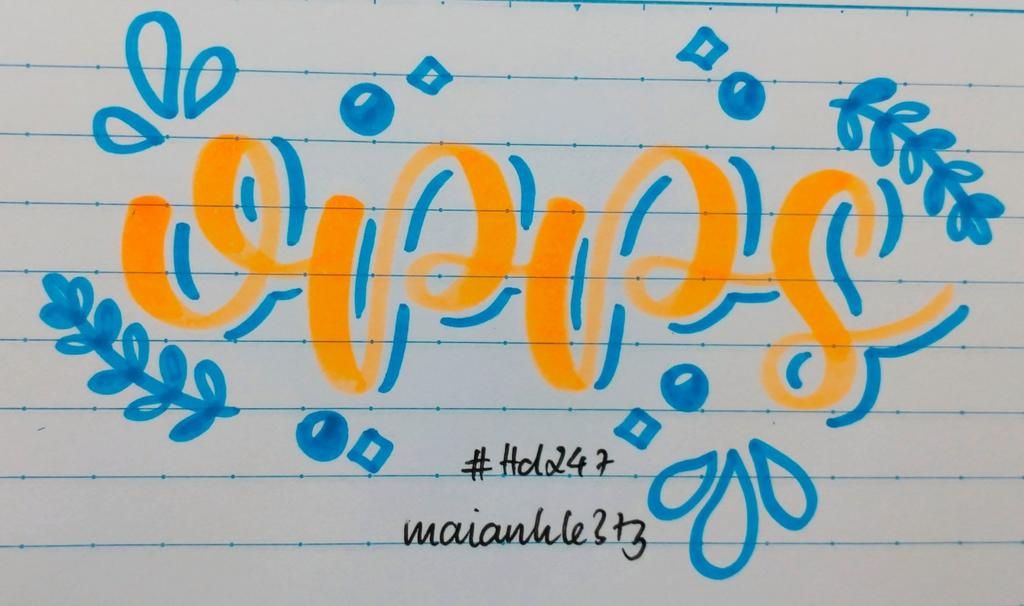 opps
#Hd247
maianhle3t3